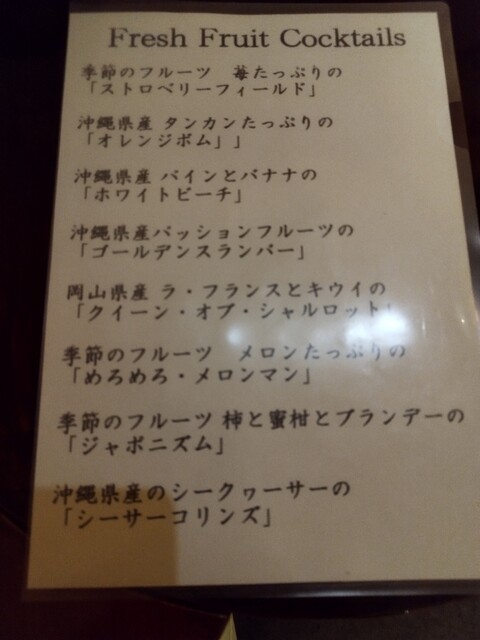 Fresh Fruit Cocktails
季節のフルーツ 苺たっぷりの
「ストロベリーフィールド」
沖縄県産 タンカンたっぷりの
「オレンジボム」」
沖縄県産 パインとバナナの
「ホワイトビーチ」
沖縄県産パッションフルーツの
「ゴールデンスランバー」
岡山県産 ラ・フランスとキウイの
「クイーン・オブ・シャルロット」
季節のフルーツ メロンたっぷりの
「めろめろ・メロンマン」
季節のフルーツ 柿と蜜柑とブランデーの
「ジャポニズム」
沖縄県産のシークヮーサーの
「シーサーコリンズ」